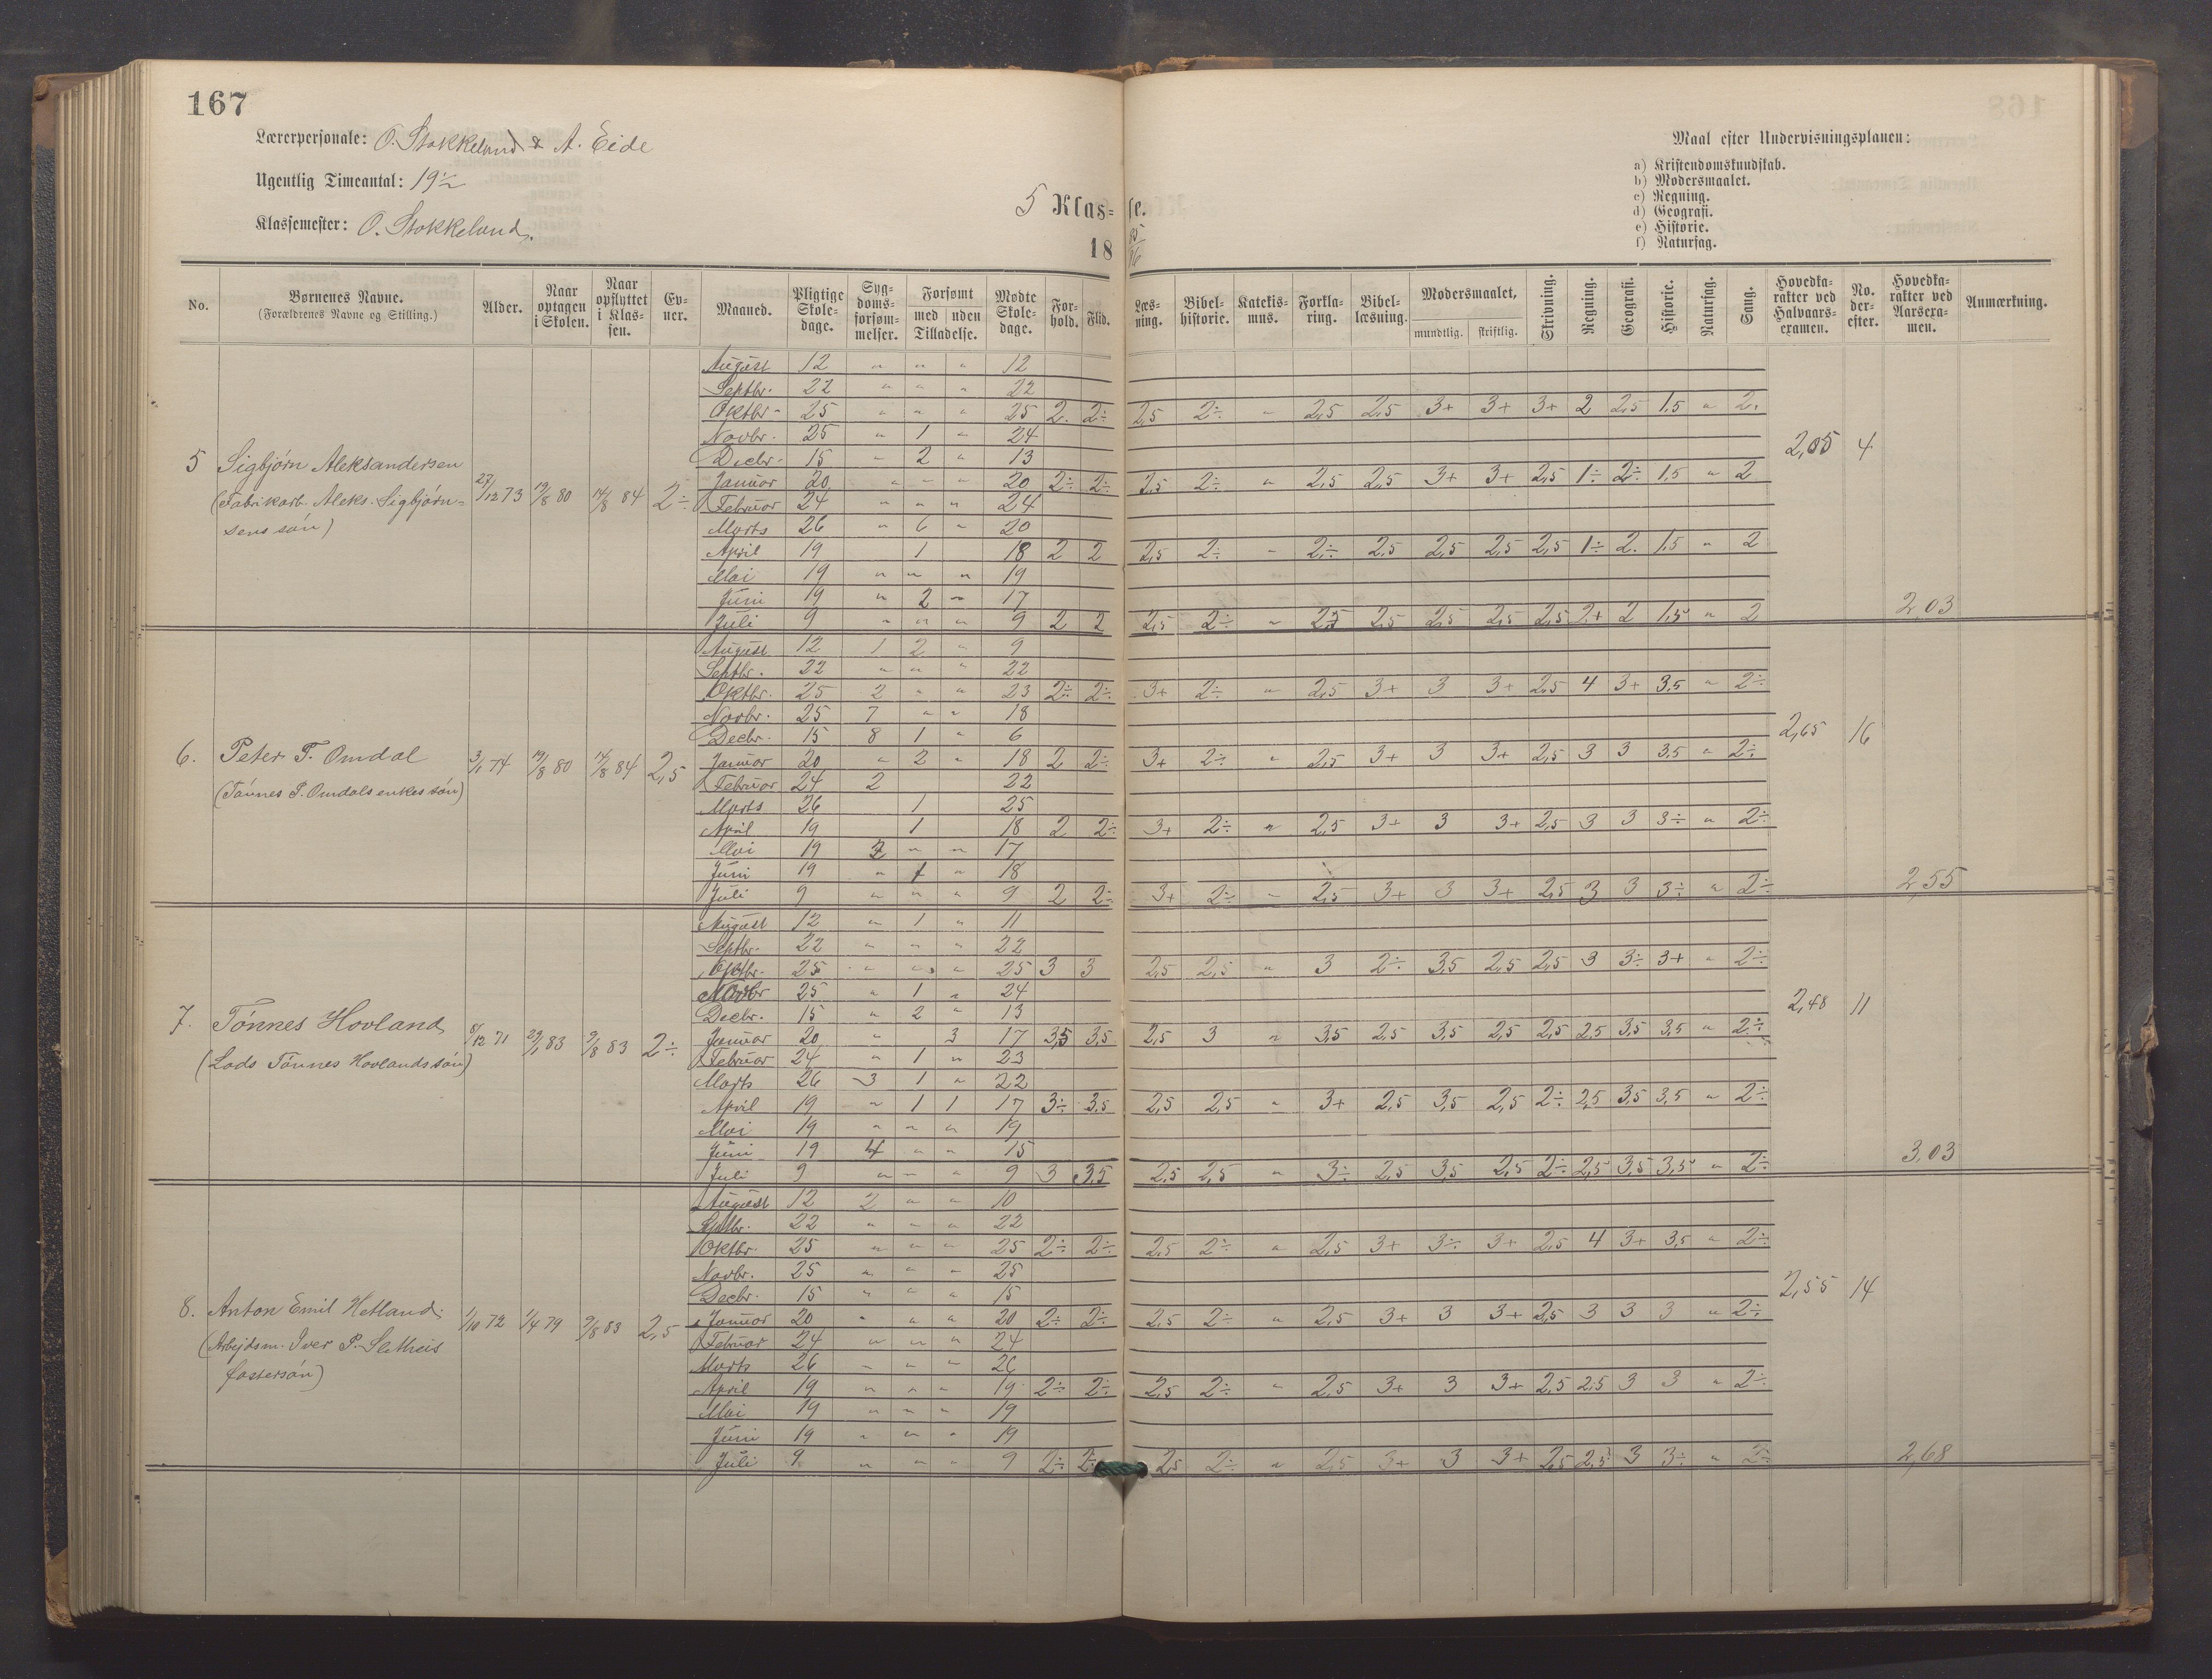 167
Lærerpersonale: O. Stokkeland & A. Eide
Ugentlig Timeantal: 19½
Klassemester: O. Stokkeland.
5 Klas= se.
18 85/86
Maal efter Undervisningsplanen:
a) Kristendomskundskab.
b) Modersmaalet.
c) Regning.
d) Geografi.
e) Historie.
f) Naturfag.
No. | Børnenes Navne. (Forældrenes Navne og Stilling.) | Alder. | Naar optagen i Skolen. | Naar opflyttet i Klassen. | Evner. | Maaned. | Pligtige Skoledage. | Sygdomsforsømmelser. | Forsømt med Tilladelse. | uden Tilladelse. | Mødte Skoledage. | Forhold. | Flid. | Læsning. | Bibelhistorie. | Katekismus. | Forklaring. | Bibellæsning. | Modersmaalet, mundtlig. | skriftlig. | Skrivning. | Regning. | Geografi. | Historie. | Naturfag. | Sang. | Hovedkarakter ved Halvaarsexamen. | No. derefter. | Hovedkarakter ved Aarsexamen. | Anmærkning.
5 Sigbjørn Aleksandersen
(Fabrikarb. Aleks. Sigbjørn=
sens søn)
27/12 73 19/8 80 14/8 84 2÷
August 12 " " " 12
Septbr. 22 " " " 22
Oktbr. 25 " " " 25 2. 2÷ 2,5 2÷ " 2,5 2,5 3+ 3+ 3+ 2 2,5 1,5 " 2.
Novbr. 25 " 1 " 24
Decbr. 15 " 2 " 13
2,05 4
Januar 20 " " " 20 2÷ 2÷ 2,5 2÷ " 2,5 2,5 3+ 3+ 2,5 1÷ 2÷ 1,5 " 2
Februar 24 " " " 24
Marts 26 " 6 " 20
April 19 1 18 2 2 2,5 2÷ " 2÷ 2,5 2,5 2,5 2,5 1÷ 2. 1,5 " 2
Mai 19 " " " 19
Juni 19 " 2 " 17
Juli 9 " " " 9 2 2 2,5 2÷ " 2,5 2,5 2,5 2,5 2,5 2+ 2 1,5 " 2 2,03
6. Peter T. Omdal
(Tønnes P. Omdals enkes søn)
3/1 74 19/8 80 14/8 84 2,5
August 12 1 2 " 9
Septbr. 22 " " " 22
Oktbr. 25 2 " " 23 2÷ 2÷ 3+ 2÷ " 2,5 3+ 3 3+ 2,5 4 3+ 3,5 " 2÷
Novbr. 25 7 " " 18
Decbr. 15 8 1 " 6
2,65 16
Januar 20 " 2 " 18 2 2÷ 3+ 2÷ " 2,5 3+ 3 3+ 2,5 3 3 3,5 " 2÷
Februar 24 2 22
Marts 26 1 25
April 19 1 18 2 2÷ 3+ 2÷ " 2,5 3+ 3 3+ 2,5 3 3 3÷ " 2÷
Mai 19 2 " " 17
Juni 19 " 1 " 18
Juli 9 " " " 9 2 2÷ 3+ 2÷ " 2,5 3+ 3 3+ 2,5 3 3 3÷ " 2÷ 2,55
7. Tønnes Hovland
(Lods Tønnes Hovlands søn)
8/12 71 29/1 83 9/8 83 2÷
August 12 " 1 " 11
Septbr. 22 " " " 22
Oktbr. 25 " " " 25 3 3 2,5 2,5 " 3 2÷ 3,5 2,5 2,5 3 3÷ 3+ " 2÷
Novbr 25 " 1 " 24
Decbr. 15 " 2 " 13
2,48 11
Januar 20 " 3 17 3,5 3,5 2,5 3 " 3,5 2,5 3,5 2,5 2,5 2,5 3,5 3,5 " 2÷
Februar 24 " 1 " 23
Marts 26 3 1 " 22
April 19 " 1 1 17 3÷ 3,5 2,5 2,5 " 3+ 2,5 3,5 2,5 2÷ 2,5 3,5 3,5 " 2÷
Mai 19 " " " 19
Juni 19 4 " " 15
Juli 9 " " " 9 3 3,5 2,5 2,5 " 3÷ 2,5 3,5 2,5 2÷ 2,5 3,5 3,5 " 2÷ 3,03
8. Anton Emil Hetland.
(Arbejdsm. Iver P. Sletheis
fostersøn)
1/10 72 1/4 79 9/8 83 2,5
August 12 2 " " 10
Septbr. 22 " " " 22
Oktbr. 25 " " " 25 2÷ 2÷ 2,5 2÷ " 2,5 3+ 3÷ 3+ 2,5 4 3+ 3,5 " 2÷
Novbr. 25 " " " 25
Decbr. 15 " " " 15
2,55 14
Januar 20 " " " 20 2÷ 2÷ 2,5 2÷ " 2,5 3+ 3 3+ 2,5 3 3 3 " 2÷
Februar 24 " " " 24
Marts 26 " " " 26
April 19 " " " 19 2÷ 2÷ 2,5 2÷ " 2,5 3+ 3 3+ 2,5 2,5 3 3 " 2÷
Mai 19 " " " 19
Juni 19 " " " 19
Juli 9 " " " 9 2÷ 2÷ 2,5 2÷ " 2,5 3+ 3 3+ 2,5 2,5 3 3÷ " 2÷ 2,68